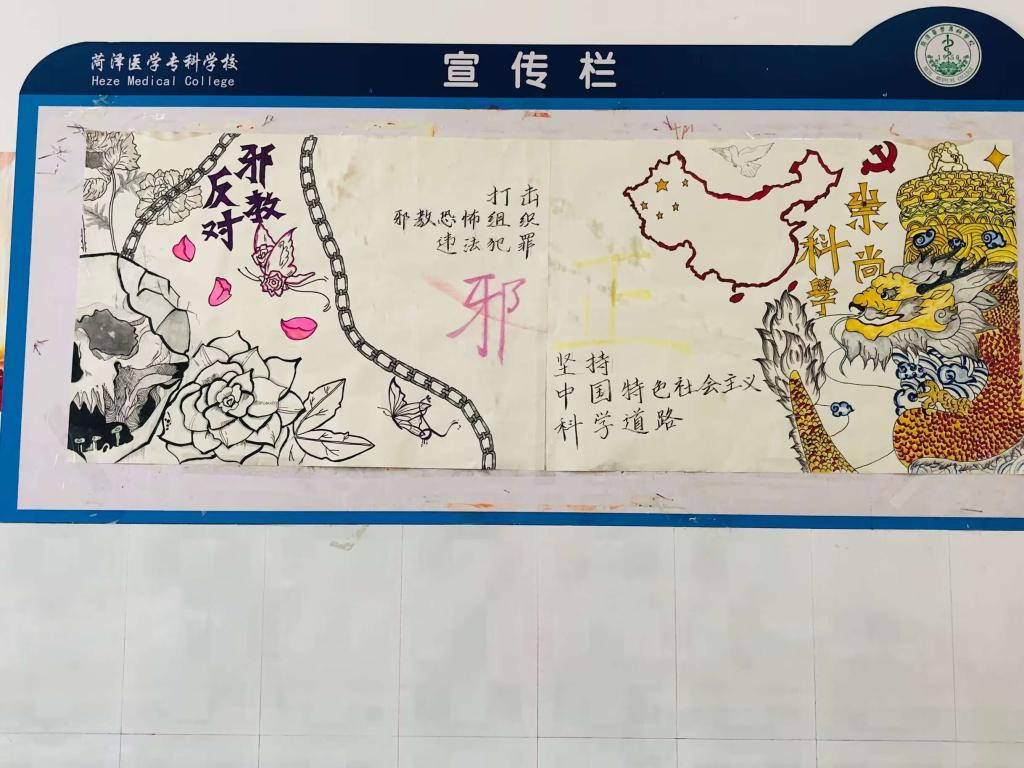 菏泽医学专科学校
Heze Medical College
宣传栏
反对
邪教
打击
邪教恐怖组织
违法犯罪
邪
正
坚持
中国特色社会主义
科学道路
崇尚
科學